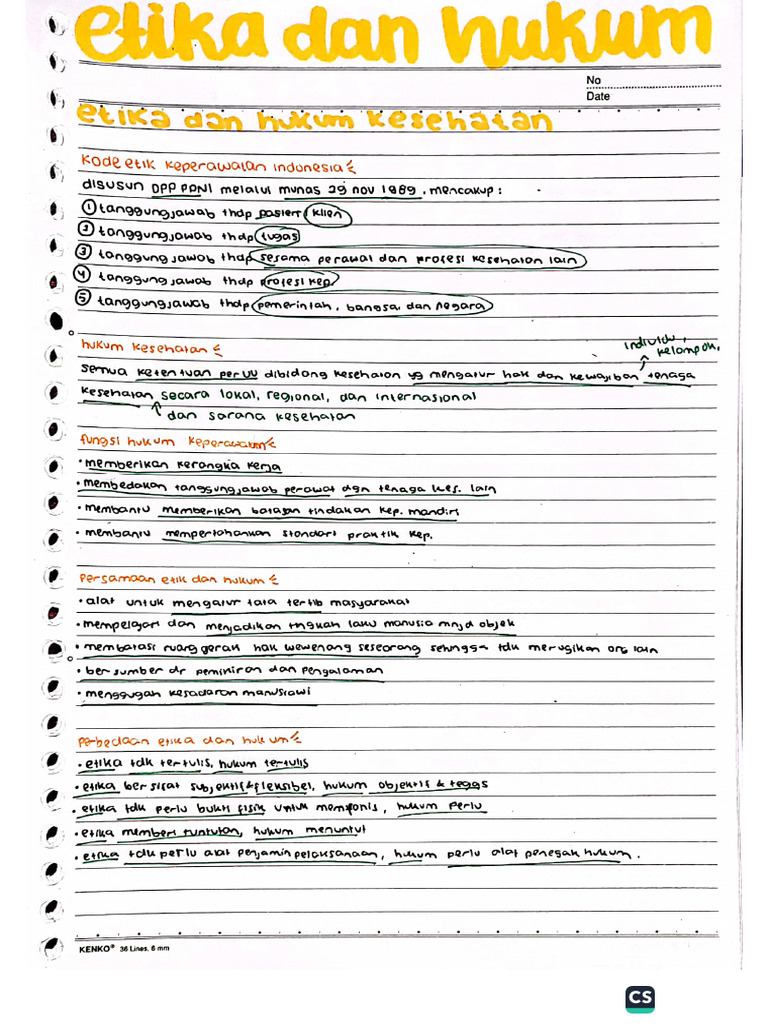 etika dan hukum
No
Date
etika dan hukum kesehatan
kode etik keperawatan indonesia
disusun DPP PPNI melalui munas 29 nov 1989. mencakup:
① tanggungjawab thdp pasien/klien
② tanggungjawab thdp tugas
③ tanggungjawab thdp sesama perawat dan profesi kesehatan lain
④ tanggungjawab thdp profesi kep
⑤ tanggungjawab thdp pemerintah, bangsa, dan negara
hukum kesehatan
individu,
kelompok,
semua ketentuan perUU dibidang kesehatan yg mengatur hak dan kewajiban tenaga
kesehatan secara lokal, regional, dan internasional
dan sarana kesehatan
fungsi hukum keperawatan
• memberikan kerangka kerja
• membedakan tanggungjawab perawat dgn tenaga kes. lain
• membantu memberikan batasan tindakan kep. mandiri
• membantu mempertahankan standart praktik kep.
persamaan etik dan hukum
• alat untuk mengatur tata tertib masyarakat
• mempelajari dan menjadikan tingkah laku manusia mnjd objek
• membatasi ruang gerak hak wewenang seseorang sehingga tdk merugikan org lain
• bersumber dr pemikiran dan pengalaman
• menggugah kesadaran manusiawi
perbedaan etika dan hukum
• etika tdk tertulis, hukum tertulis
• etika bersifat subjektif & fleksibel, hukum objektif & tegas
• etika tdk perlu bukti fisik untuk memvonis, hukum perlu
• etika memberi tuntutan, hukum menuntut
• etika tdk perlu alat penjamin pelaksanaan, hukum perlu alat penegak hukum.
KENKO® 36 Lines, 6 mm
CS